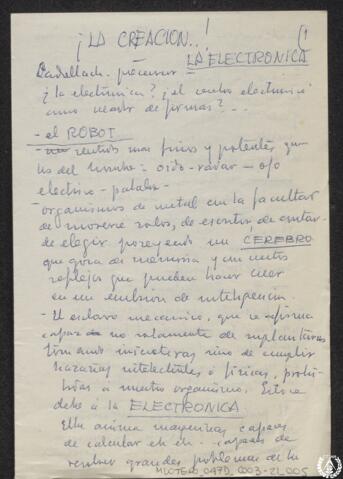 ¡LA CREACION..!
LA ELECTRONICA
precursor
¿la electronica? ¿el cerebro electronico
como creador de formas? - ..
- el ROBOT
- sentidos mas finos y potentes que
los del hombre = oido - radar - ojo
electrico - palabra -
- organismos de metal con la facultad
de moverse solos, de escribir, de contar
de elegir poseyendo un CEREBRO
que goza de memoria y con unos
reflejos que pueden hacer creer
en un embrion de inteligencia -
- El esclavo mecanico, que se afirma
capaz no solamente de suplantar
sino de cumplir
hazañas intelectuales ó fisicas, prohi-
bidas á nuestro organismo. Esto se
debe á la ELECTRONICA
Ella anima maquinas capaces
de calcular etc etc - capaces de
resolver grandes problemas de la
MLOTERO_047D_0003-21_005